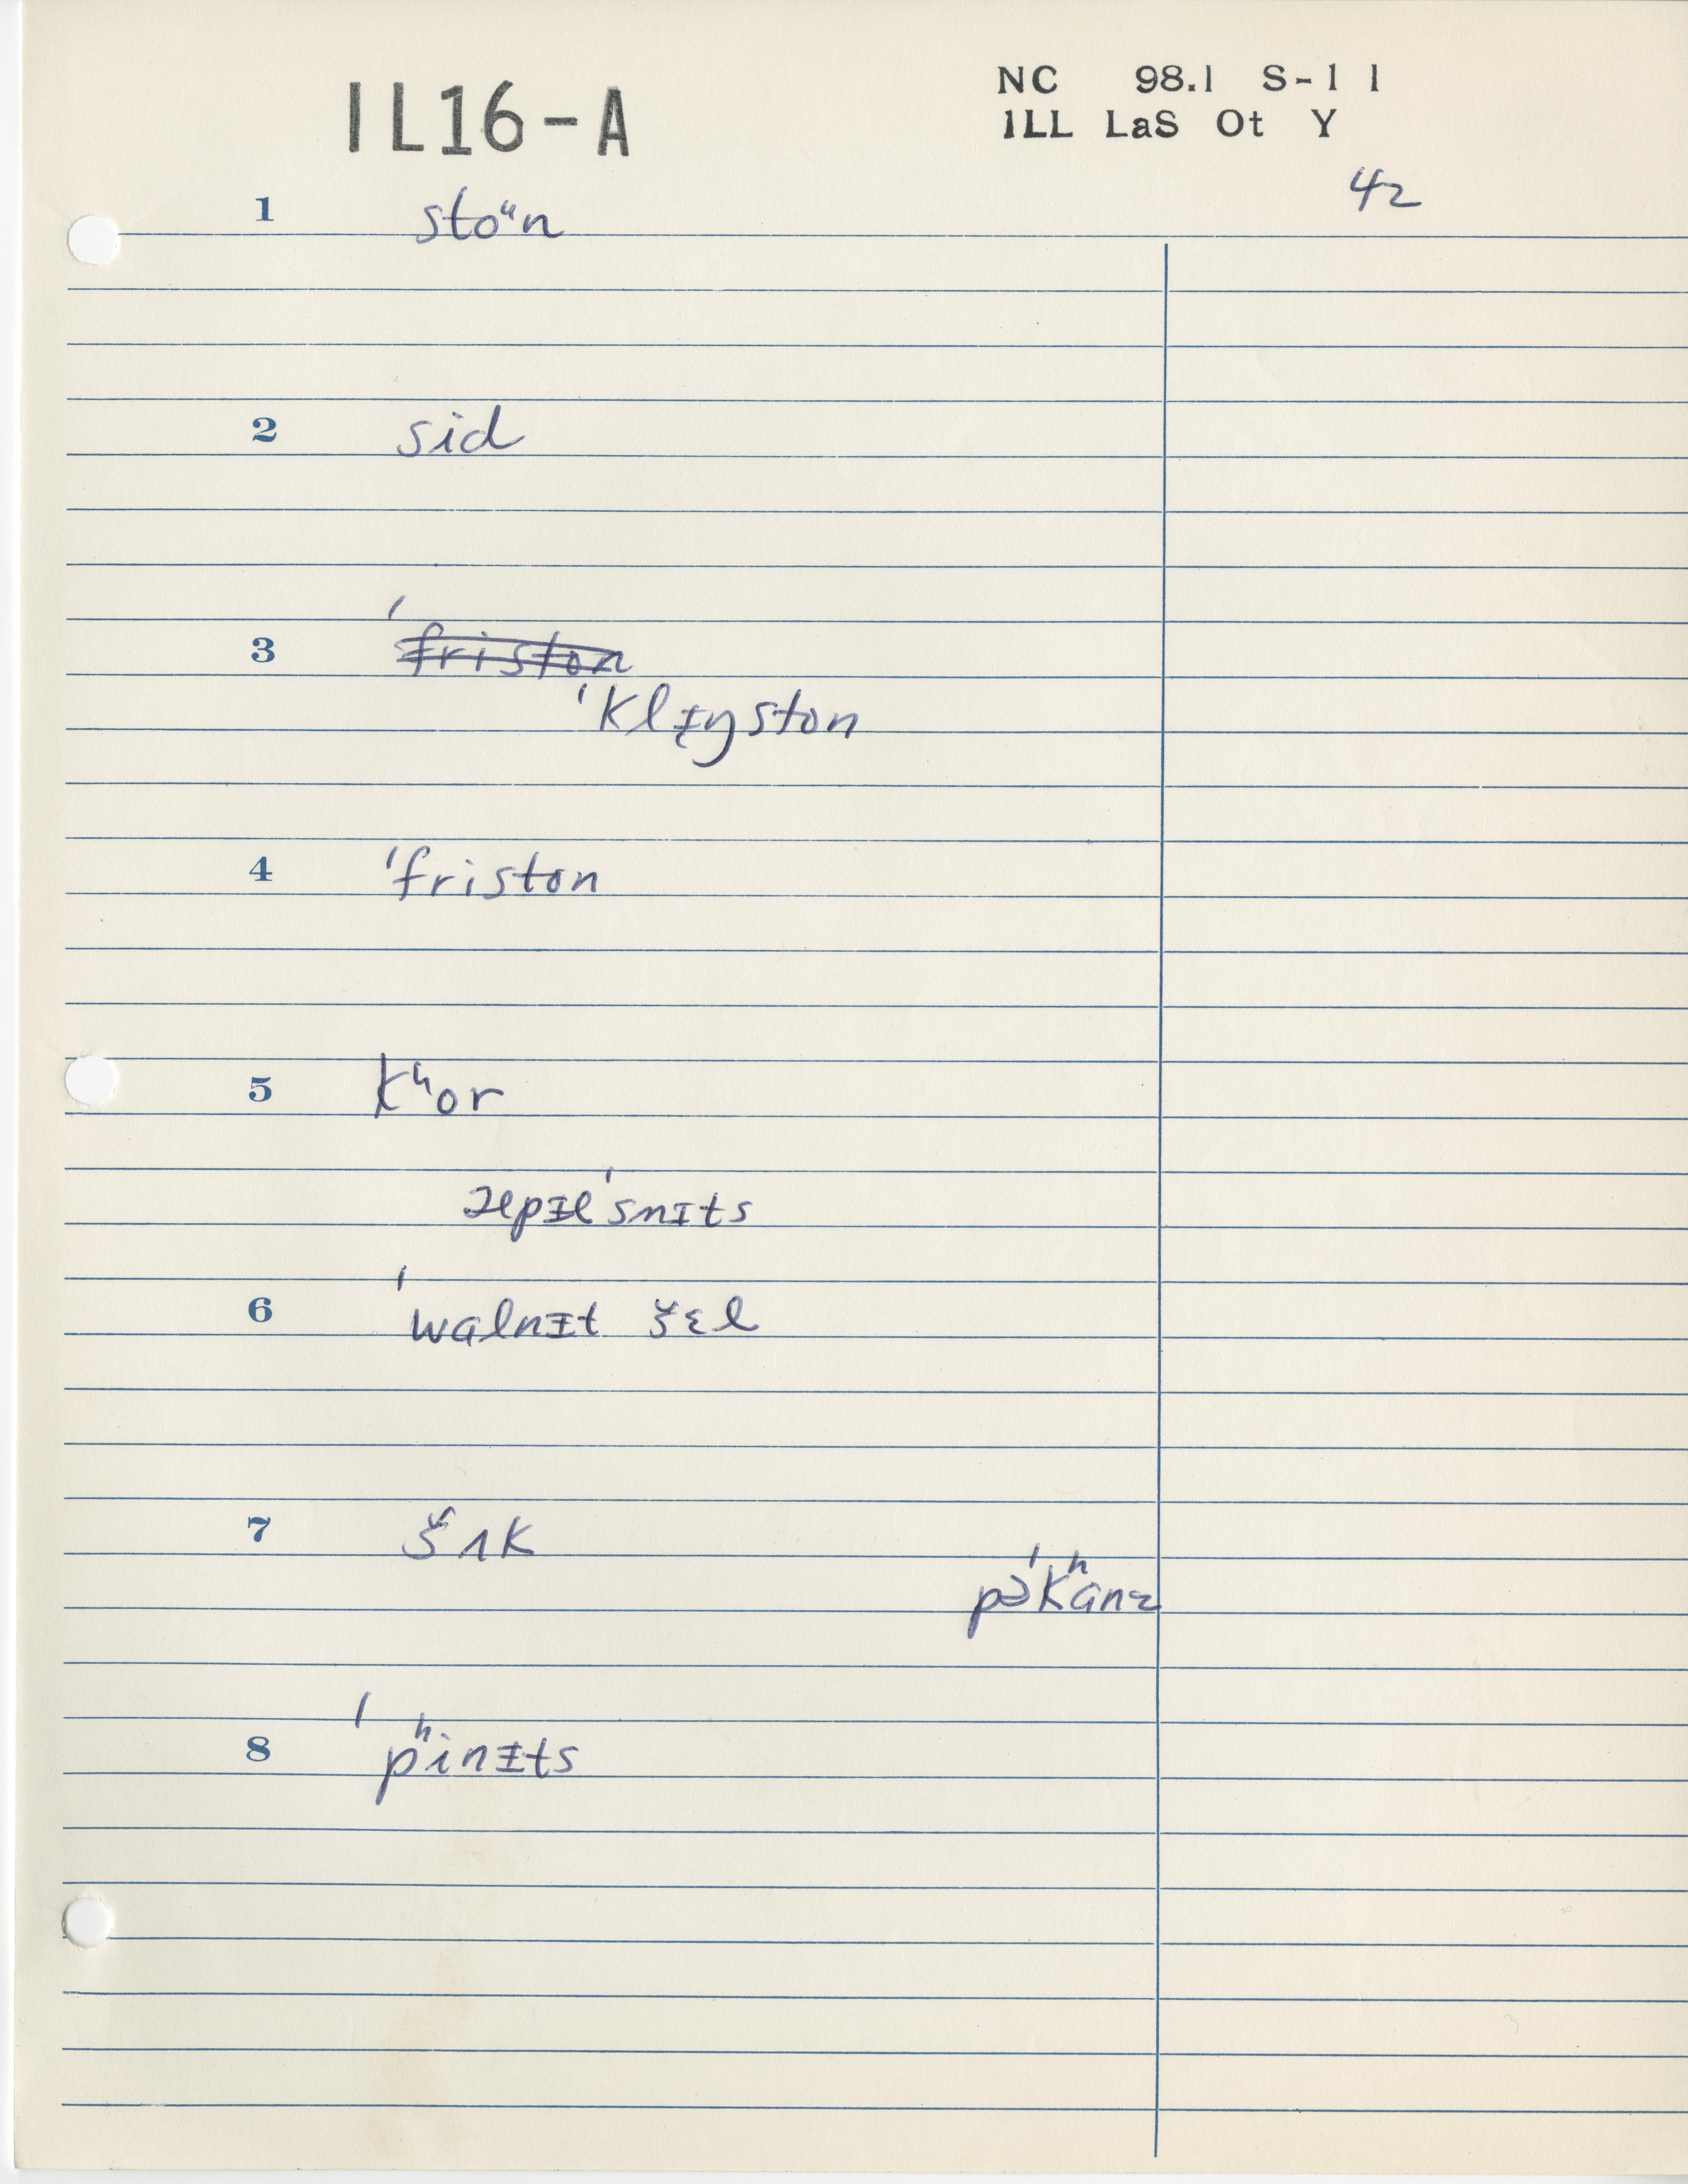 IL16-A
NC 98.1 S-11
ILL LaS Ot Y
42
1 stoᵘn
2 sid
3 ˈf̶r̶i̶s̶t̶o̶n̶
ˈklɪŋston
4 ˈfriston
5 kʰor
6 ˈwalnɪt šɛl
7 šʌk
pəˈkʰanz
8 ˈpʰinɪts